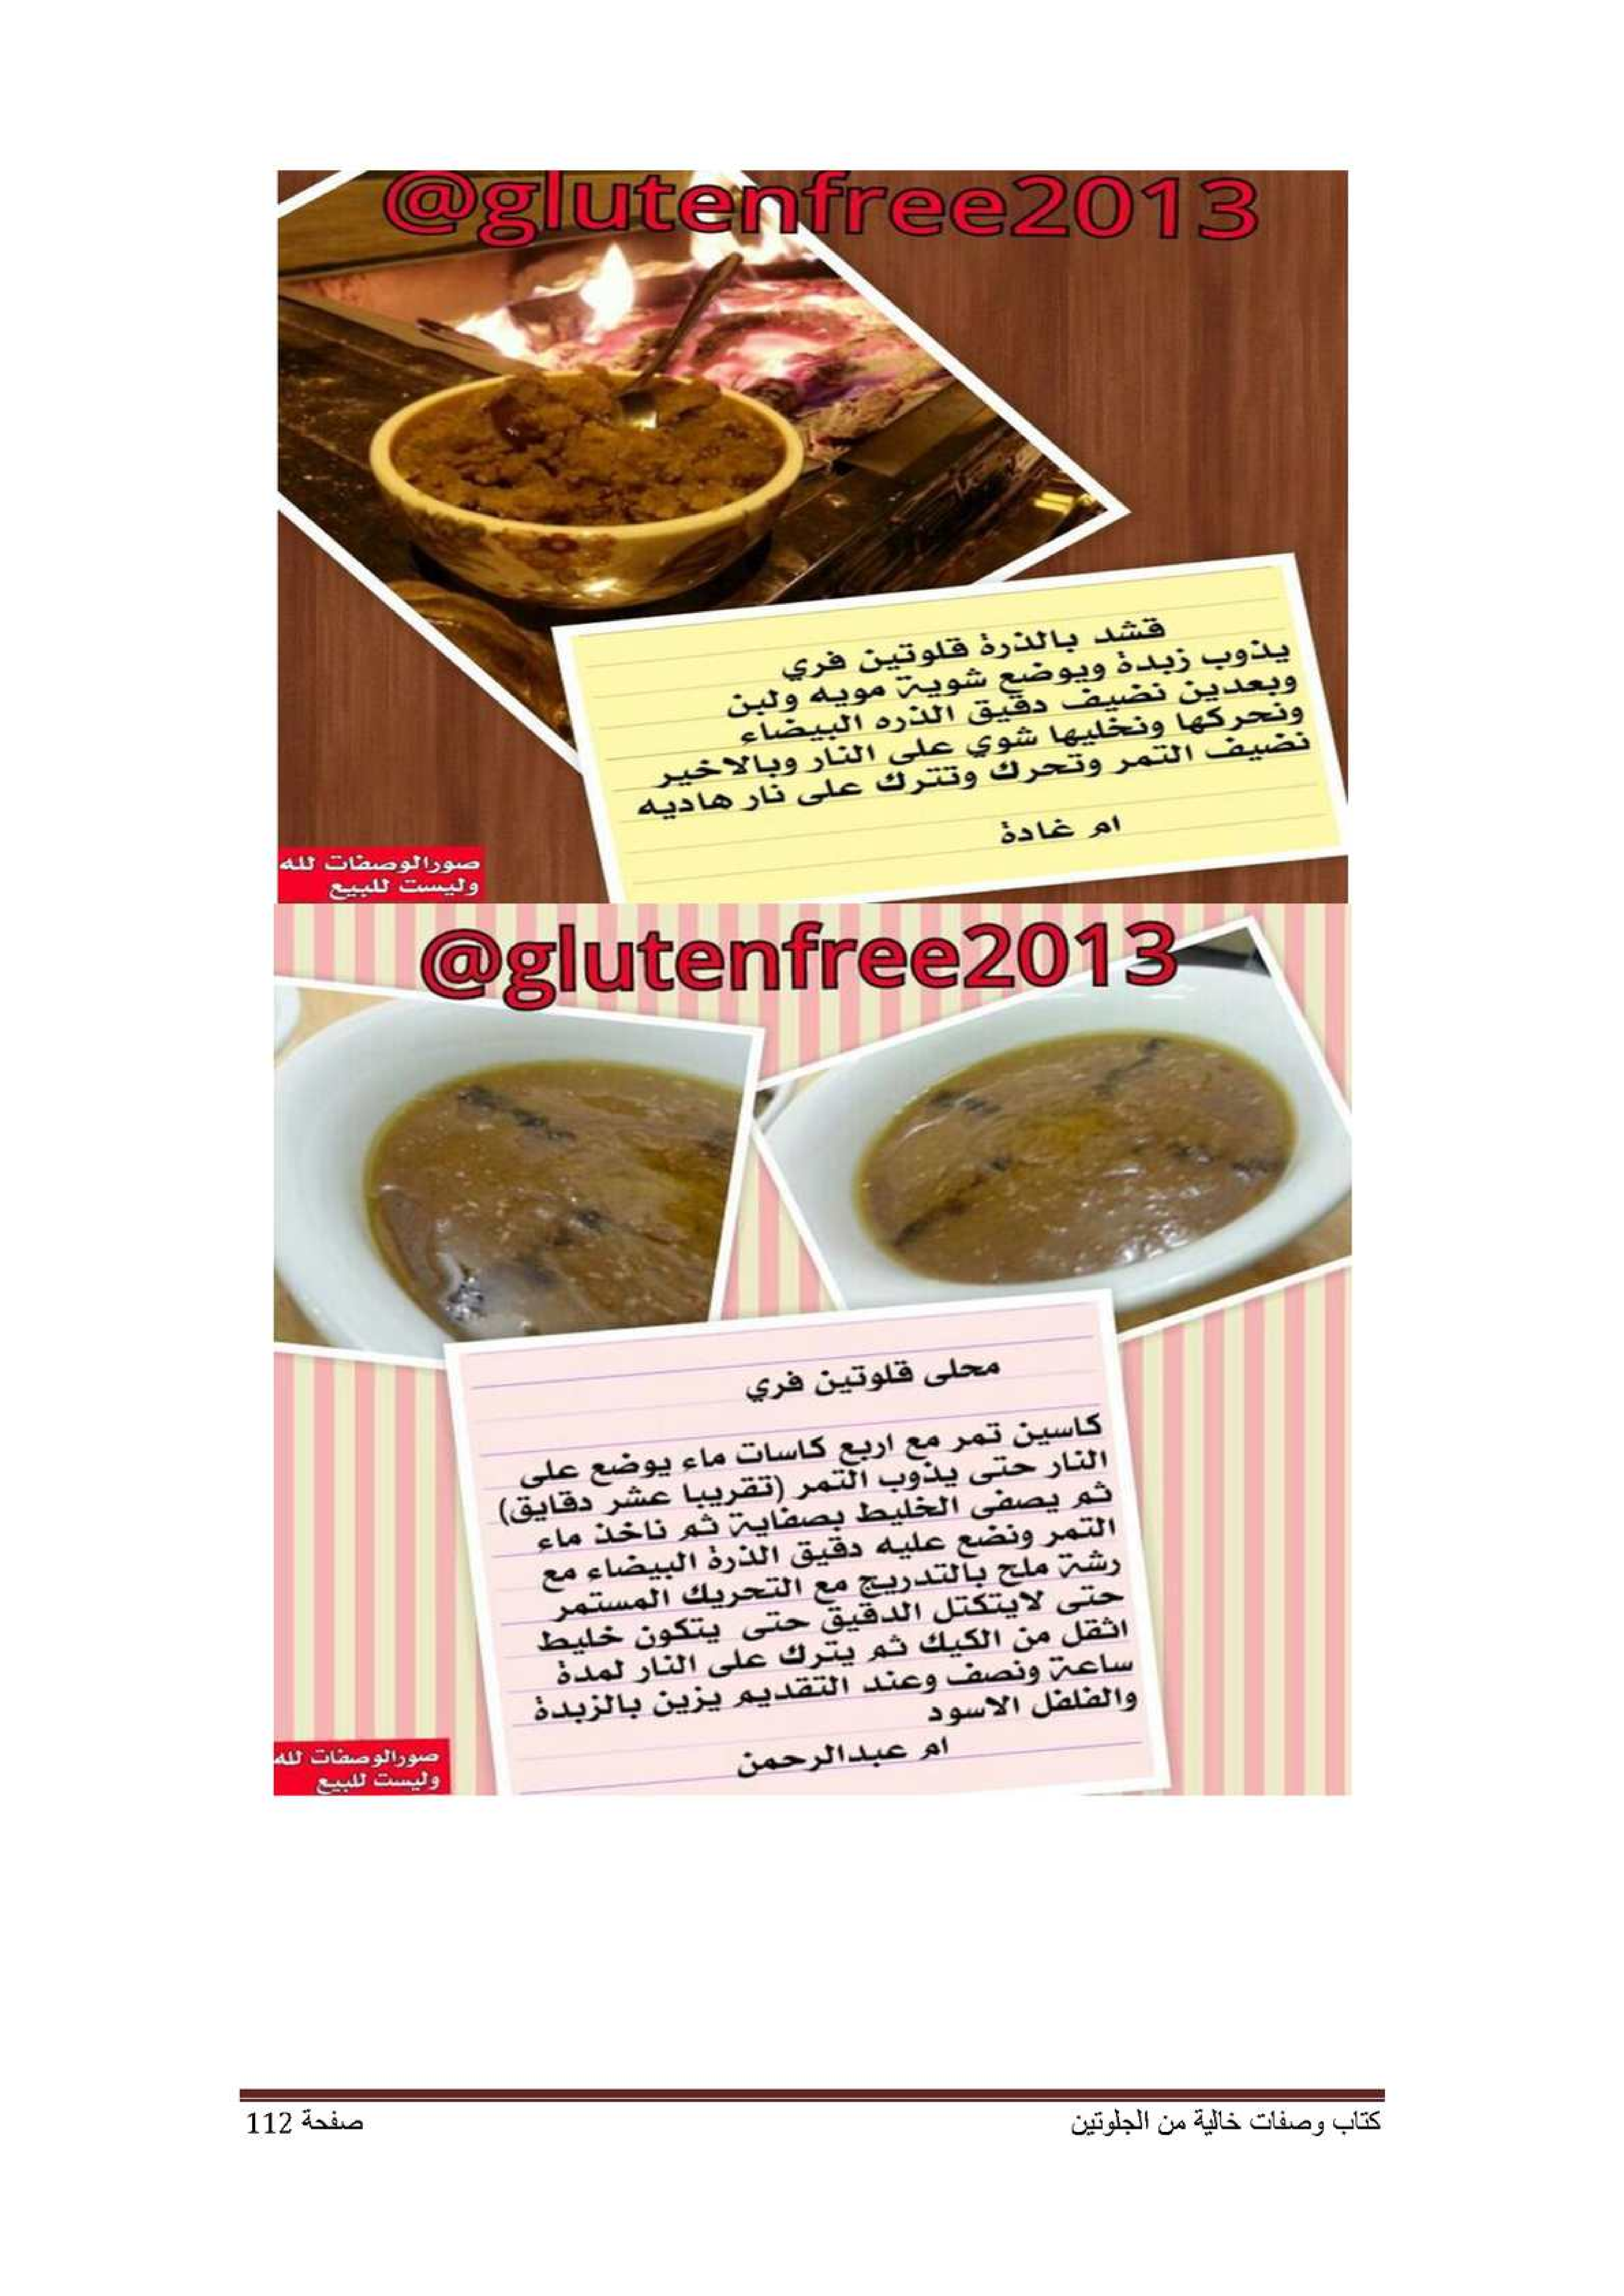 @glutenfree2013
قشد بالذرة قلوتين فري
يذوب زبدة ويوضع شوية مويه ولبن
وبعدين نضيف دقيق الذره البيضاء
ونحركها ونخليها شوي على النار وبالاخير
نضيف التمر وتحرك وتترك على نار هاديه
ام غادة
صورالوصفات لله
وليست للبيع
@glutenfree2013
محلى قلوتين فري
كاسين تمر مع اربع كاسات ماء يوضع على
النار حتى يذوب التمر (تقريبا عشر دقايق)
ثم يصفى الخليط بصفاية ثم ناخذ ماء
التمر ونضع عليه دقيق الذرة البيضاء مع
رشة ملح بالتدريج مع التحريك المستمر
حتى لايتكتل الدقيق حتى يتكون خليط
اثقل من الكيك ثم يترك على النار لمدة
ساعة ونصف وعند التقديم يزين بالزبدة
والفلفل الاسود
ام عبدالرحمن
صورالوصفات لله
وليست للبيع
كتاب وصفات خالية من الجلوتين
صفحة 112